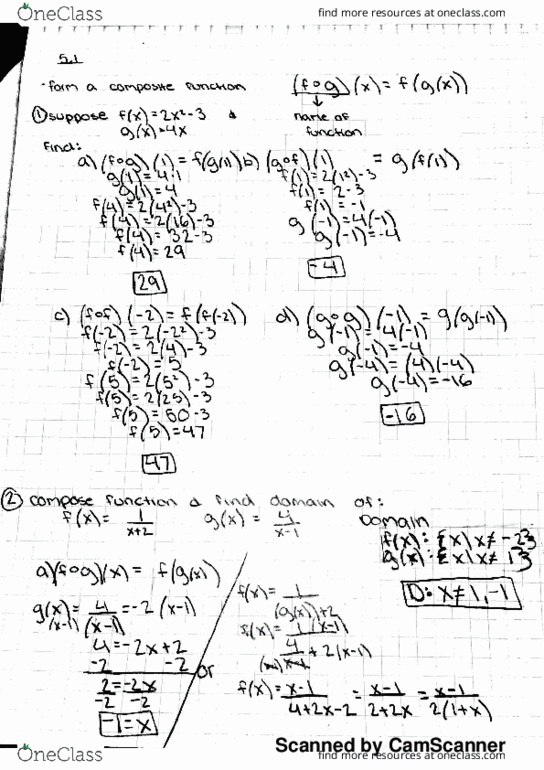 OneClass
find more resources at oneclass.com
5.1
-form a composite function (f∘g)(x) = f(g(x))
name of
function
① suppose f(x)=2x²-3 &
g(x)=4x
Find:
a) (f∘g)(1) = f(g(1))
g(1)=4·1
g(1)=4
f(4)=2(4²)-3
f(4)=2(16)-3
f(4)=32-3
f(4)=29
29
b) (g∘f)(1) = g(f(1))
f(1)=2(1²)-3
f(1)=2-3
f(1)=-1
g(-1)=4(-1)
g(-1)=-4
-4
c) (f∘f)(-2) = f(f(-2))
f(-2)=2(-2²)-3
f(-2)=2(4)-3
f(-2)=5
f(5)=2(5²)-3
f(5)=2(25)-3
f(5)=50-3
f(5)=47
47
d) (g∘g)(-1) = g(g(-1))
g(-1)=4(-1)
g(-1)=-4
g(-4)=(4)(-4)
g(-4)=-16
-16
② compose function & find domain of:
f(x)= 1/(x+2) g(x)= 4/(x-1)
Domain
f(x): {x|x≠-2}
g(x): {x|x≠1}
D: x≠1,-1
a) (f∘g)(x) = f(g(x))
g(x)= 4/(x-1) =-2(x-1)
(x-1)
4=-2x+2
-2 -2
2=-2x
-2 -2
-1=x
or
f(x)= 1/((g(x))+2)
f(x)= 1(x-1)
4/(x-1) + 2(x-1)
f(x)= (x-1)/(4+2x-2) = (x-1)/(2+2x) = (x-1)/(2(1+x))
Scanned by CamScanner
OneClass
find more resources at oneclass.com